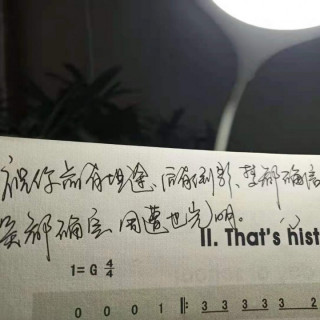 祝你前有坦途、后有倒影、梦都确信
笑都确定、周遭也光明。
II. That's hist
1=G 4/4
0 0 0 1 ‖: 3 3 3 3 3 2